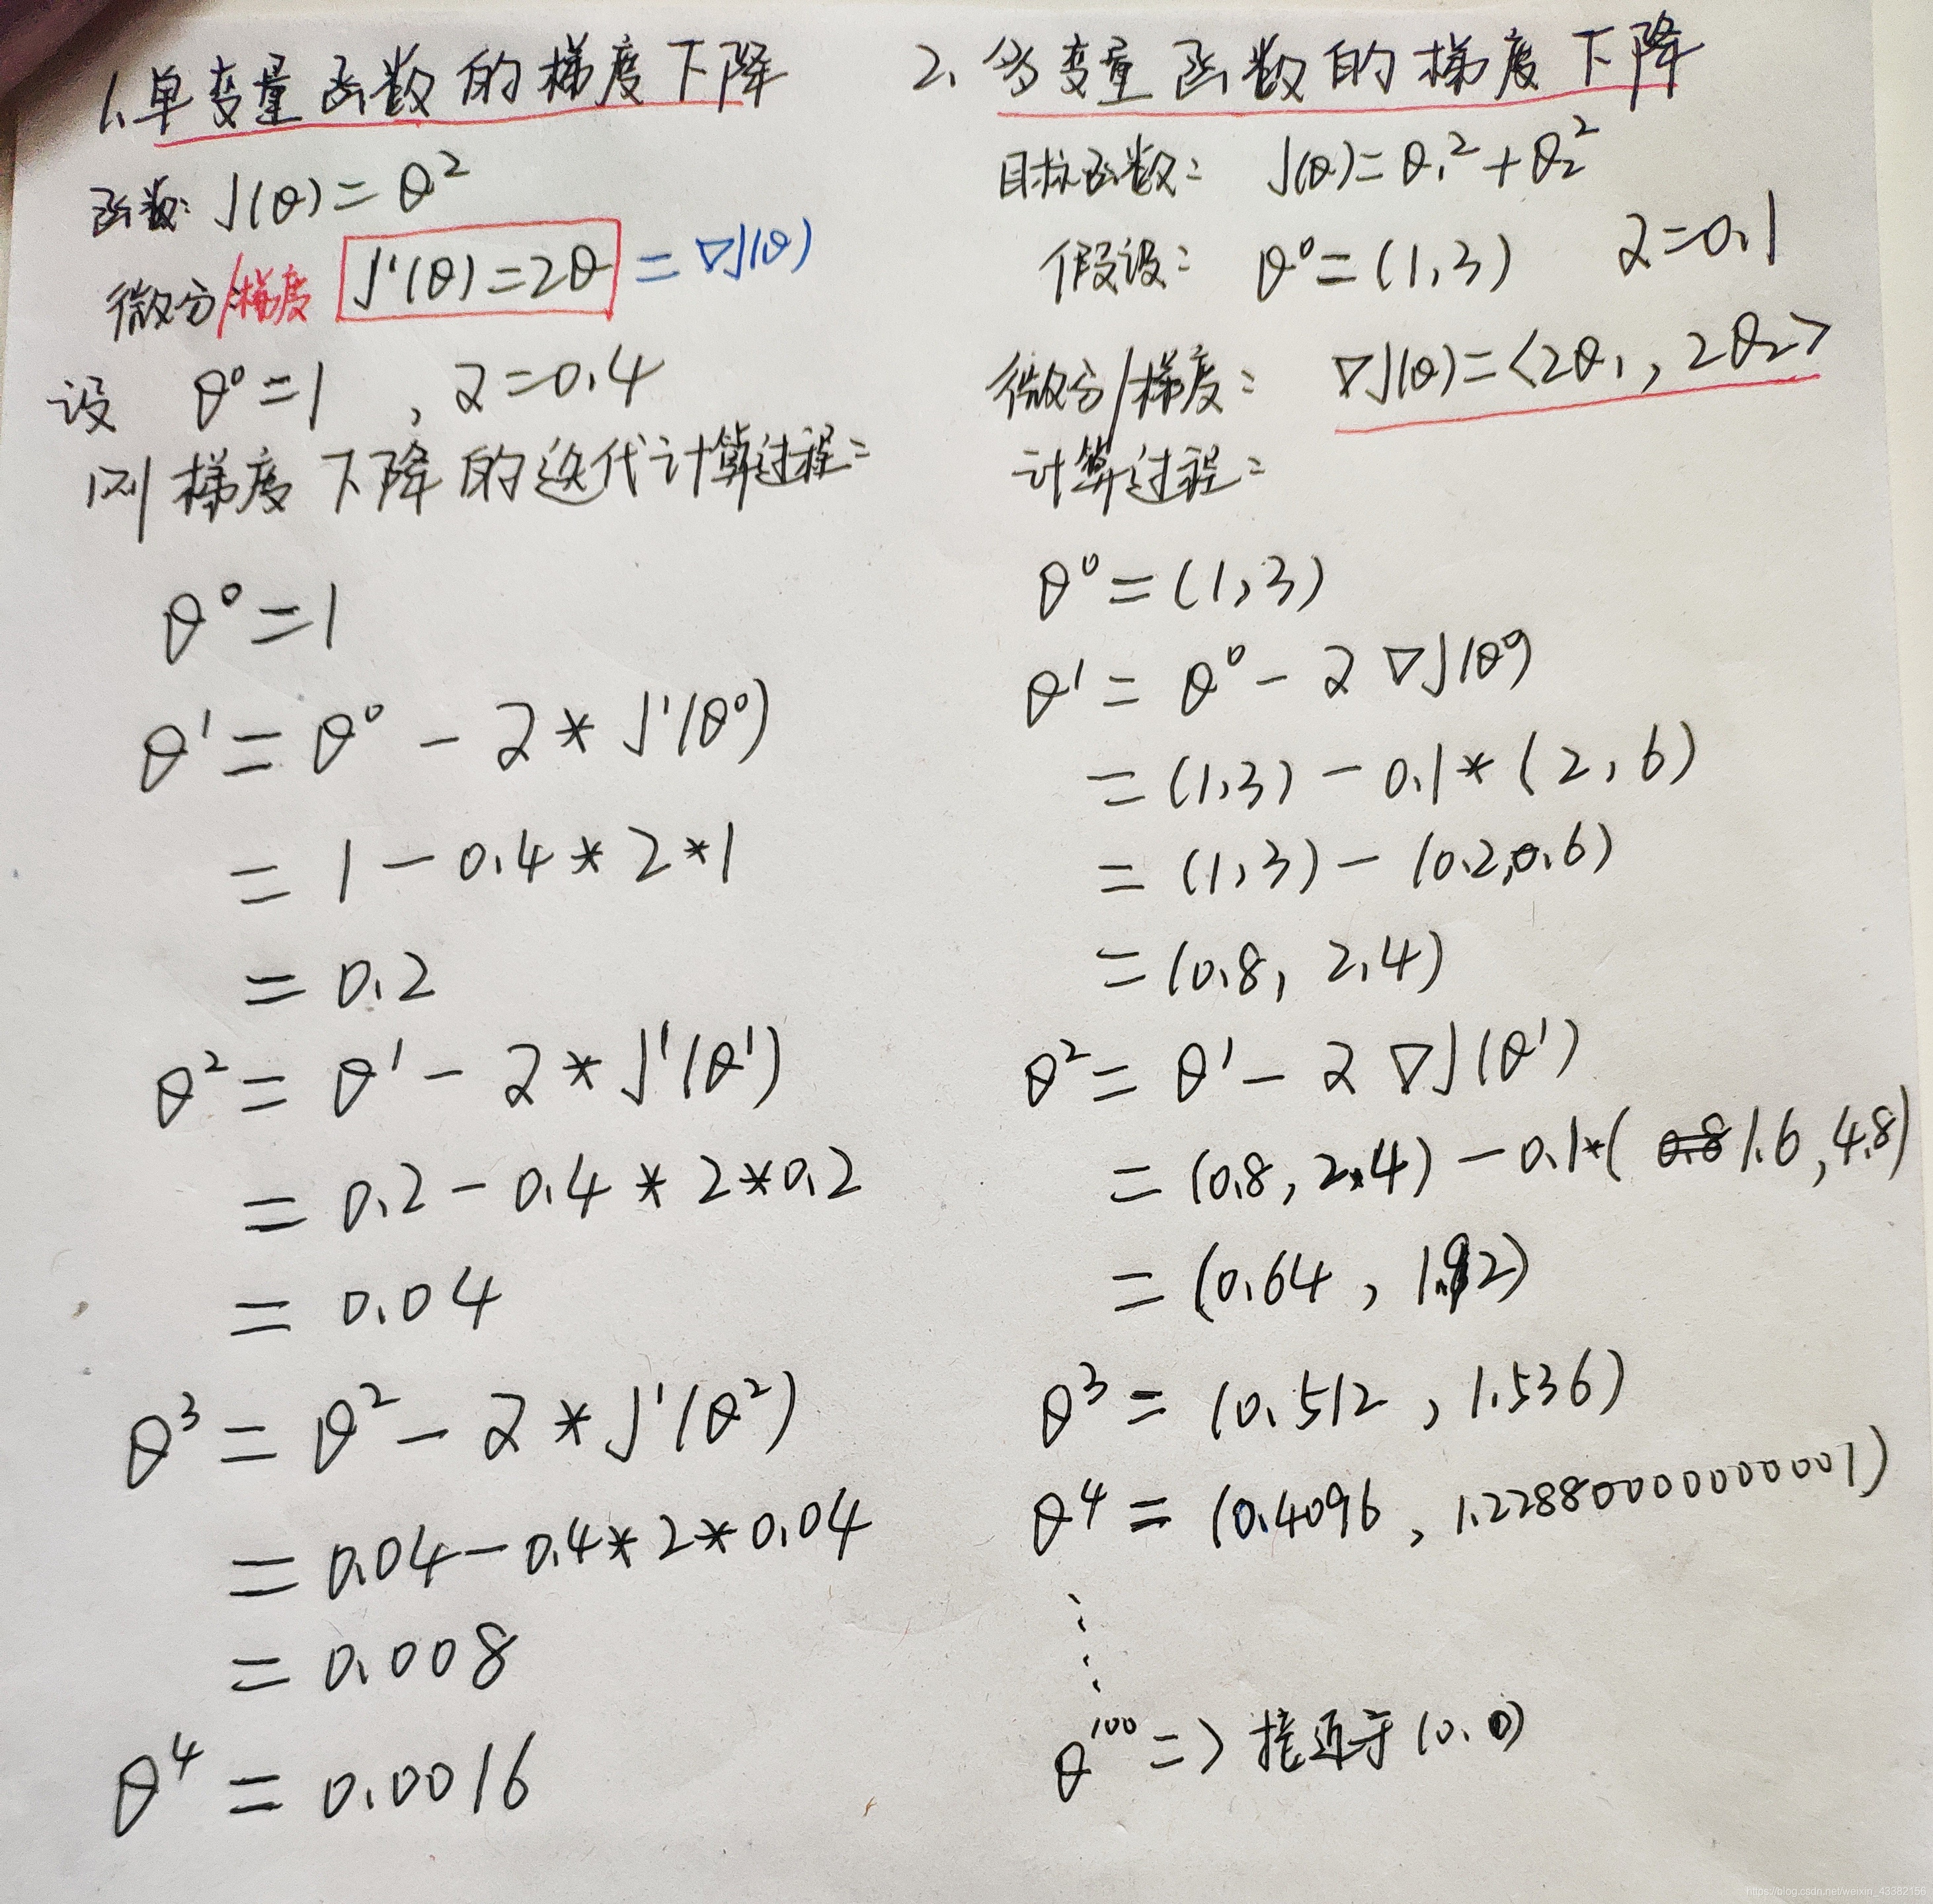 1.单变量函数的梯度下降
函数: J(θ)=θ²
微分/梯度 J'(θ)=2θ = ∇J(θ)
设 θ⁰=1 , α=0.4
则梯度下降的迭代计算过程:
θ⁰=1
θ¹=θ⁰-α*J'(θ⁰)
=1-0.4*2*1
=0.2
θ²=θ¹-α*J'(θ¹)
=0.2-0.4*2*0.2
=0.04
θ³=θ²-α*J'(θ²)
=0.04-0.4*2*0.04
=0.008
θ⁴=0.0016
2.多变量函数的梯度下降
目标函数: J(θ)=θ₁²+θ₂²
假设: θ⁰=(1,3) α=0.1
微分/梯度: ∇J(θ)=<2θ₁, 2θ₂>
计算过程:
θ⁰=(1,3)
θ¹=θ⁰-α∇J(θ⁰)
=(1,3)-0.1*(2,6)
=(1,3)-(0.2,0.6)
=(0.8, 2.4)
θ²=θ¹-α∇J(θ¹)
=(0.8, 2.4)-0.1*(1.6,4.8)
=(0.64, 1.92)
θ³=(0.512, 1.536)
θ⁴=(0.4096, 1.2288000000000001)
⋮
θ¹⁰⁰=>接近于(0.0)
https://blog.csdn.net/weixin_43382156